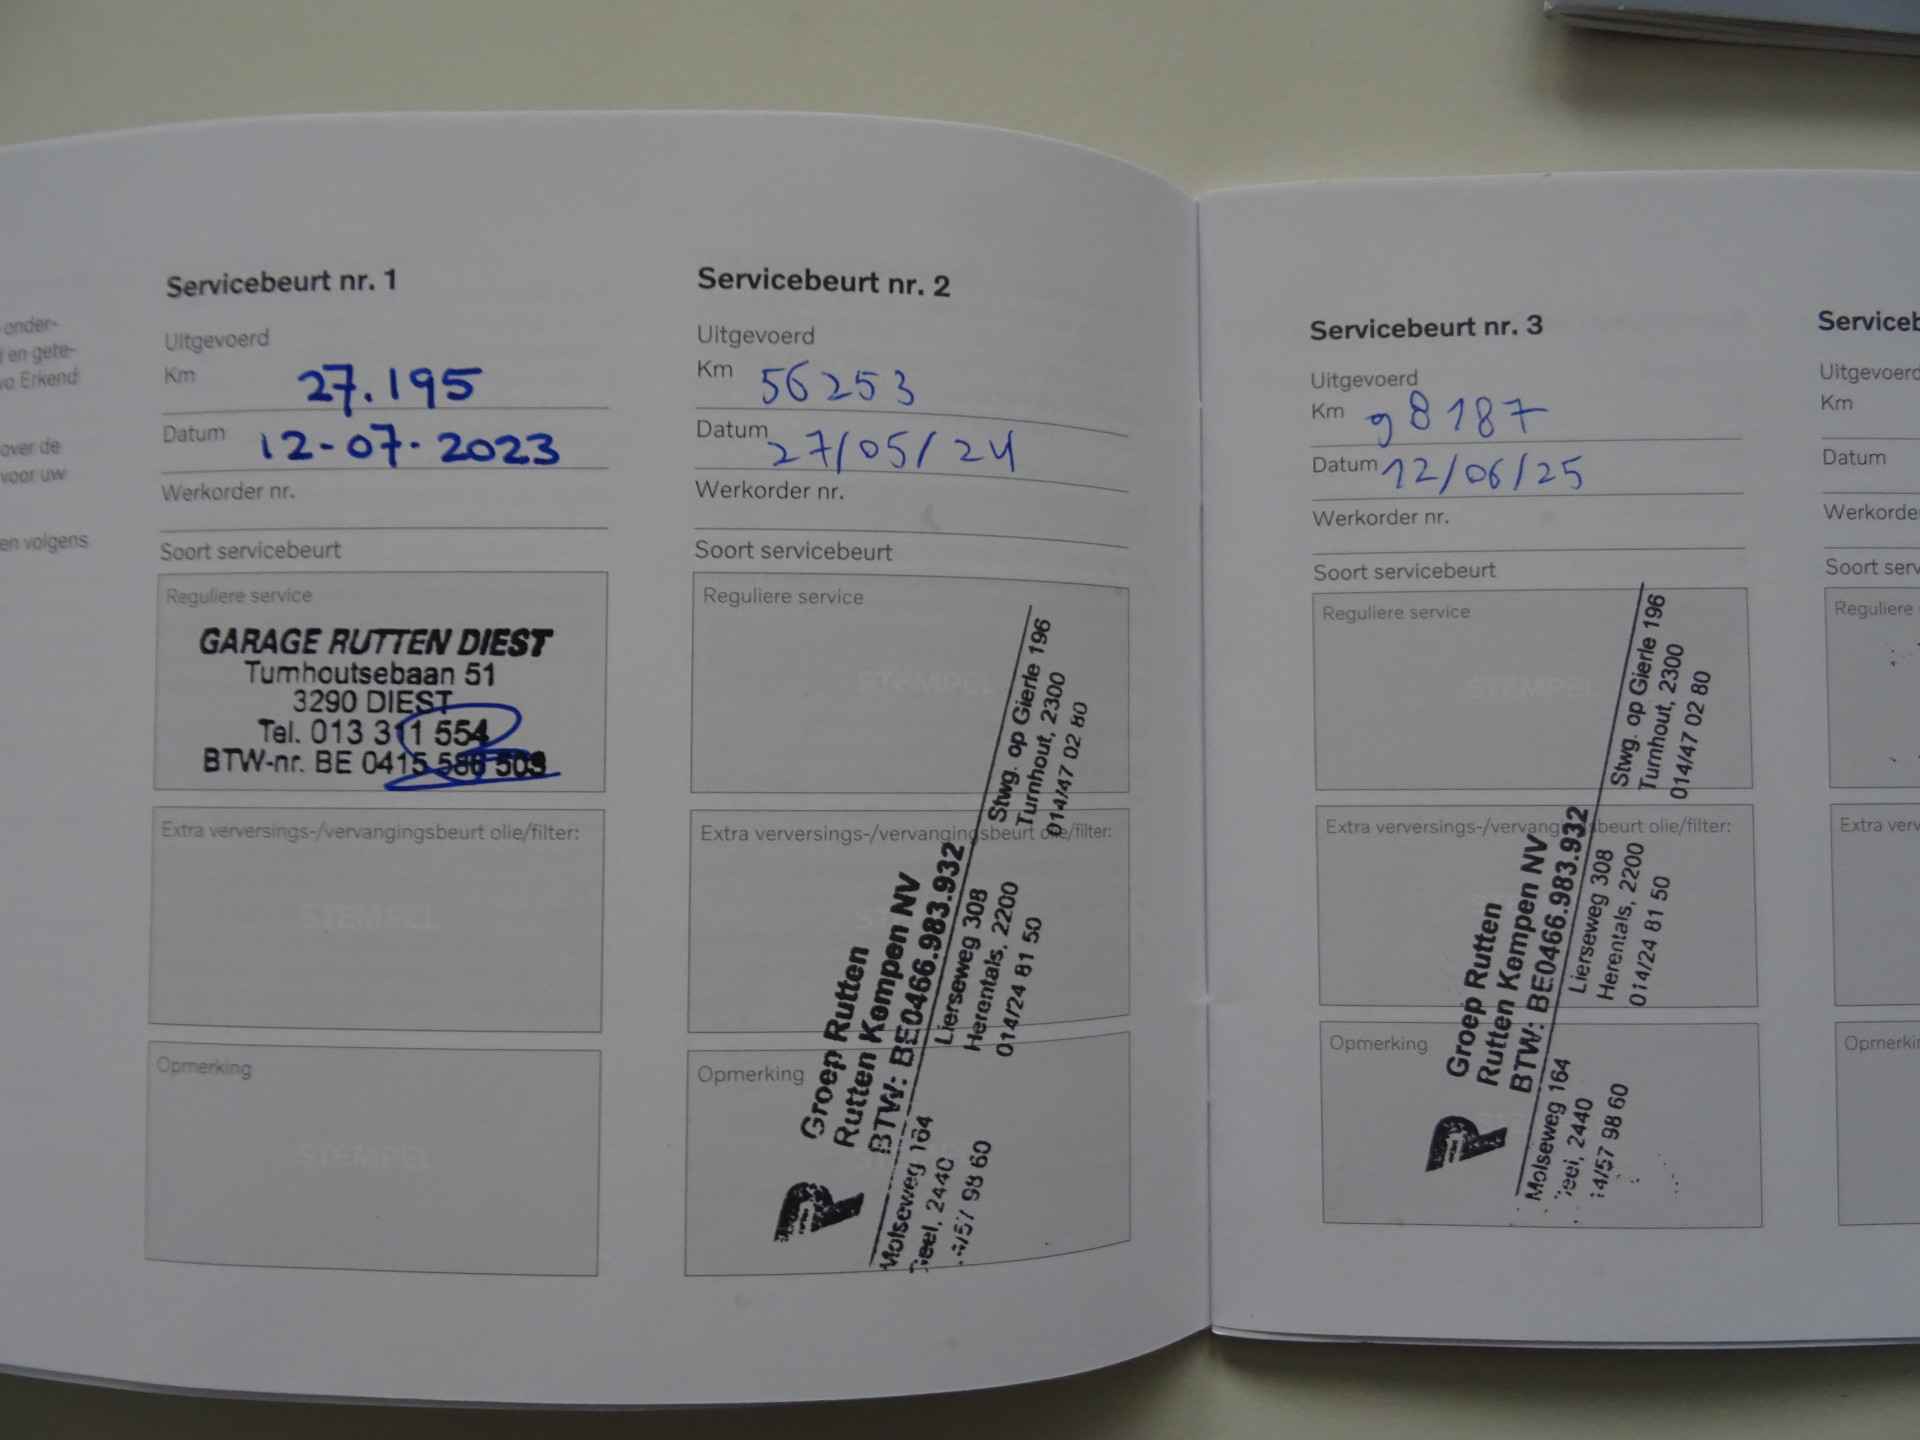 onder-
en gete-
Erkend
over de
voor uw
en volgens
Servicebeurt nr. 1
Uitgevoerd
Km 27.195
Datum 12-07-2023
Werkorder nr.
Soort servicebeurt
Reguliere service
GARAGE RUTTEN DIEST
Turnhoutsebaan 51
3290 DIEST
Tel. 013 311 554
BTW-nr. BE 0415 586 509
Extra verversings-/vervangingsbeurt olie/filter:
STEMPEL
Opmerking
STEMPEL
Servicebeurt nr. 2
Uitgevoerd
Km 56253
Datum 27/05/24
Werkorder nr.
Soort servicebeurt
Reguliere service
STEMPEL
Extra verversings-/vervangingsbeurt olie/filter:
Opmerking
Groep Rutten
Rutten Kempen NV
BTW: BE0466.983.932
Molseweg 164
Geel, 2440
Lierseweg 308
Herentals, 2200
014/24 81 50
Stwg. op Gierle 196
Turnhout, 2300
014/47 02 80
Servicebeurt nr. 3
Uitgevoerd
Km 98187
Datum 12/06/25
Werkorder nr.
Soort servicebeurt
Reguliere service
STEMPEL
Extra verversings-/vervangingsbeurt olie/filter:
Opmerking
Groep Rutten
Rutten Kempen NV
BTW: BE0466.983.932
Molseweg 164
2440
Lierseweg 308
Herentals, 2200
014/24 81 50
Stwg. op Gierle 196
Turnhout, 2300
014/47 02 80
Serviceb
Uitgevoerd
Km
Datum
Werkorde
Soort serv
Reguliere
Extra verv
Opmerkin